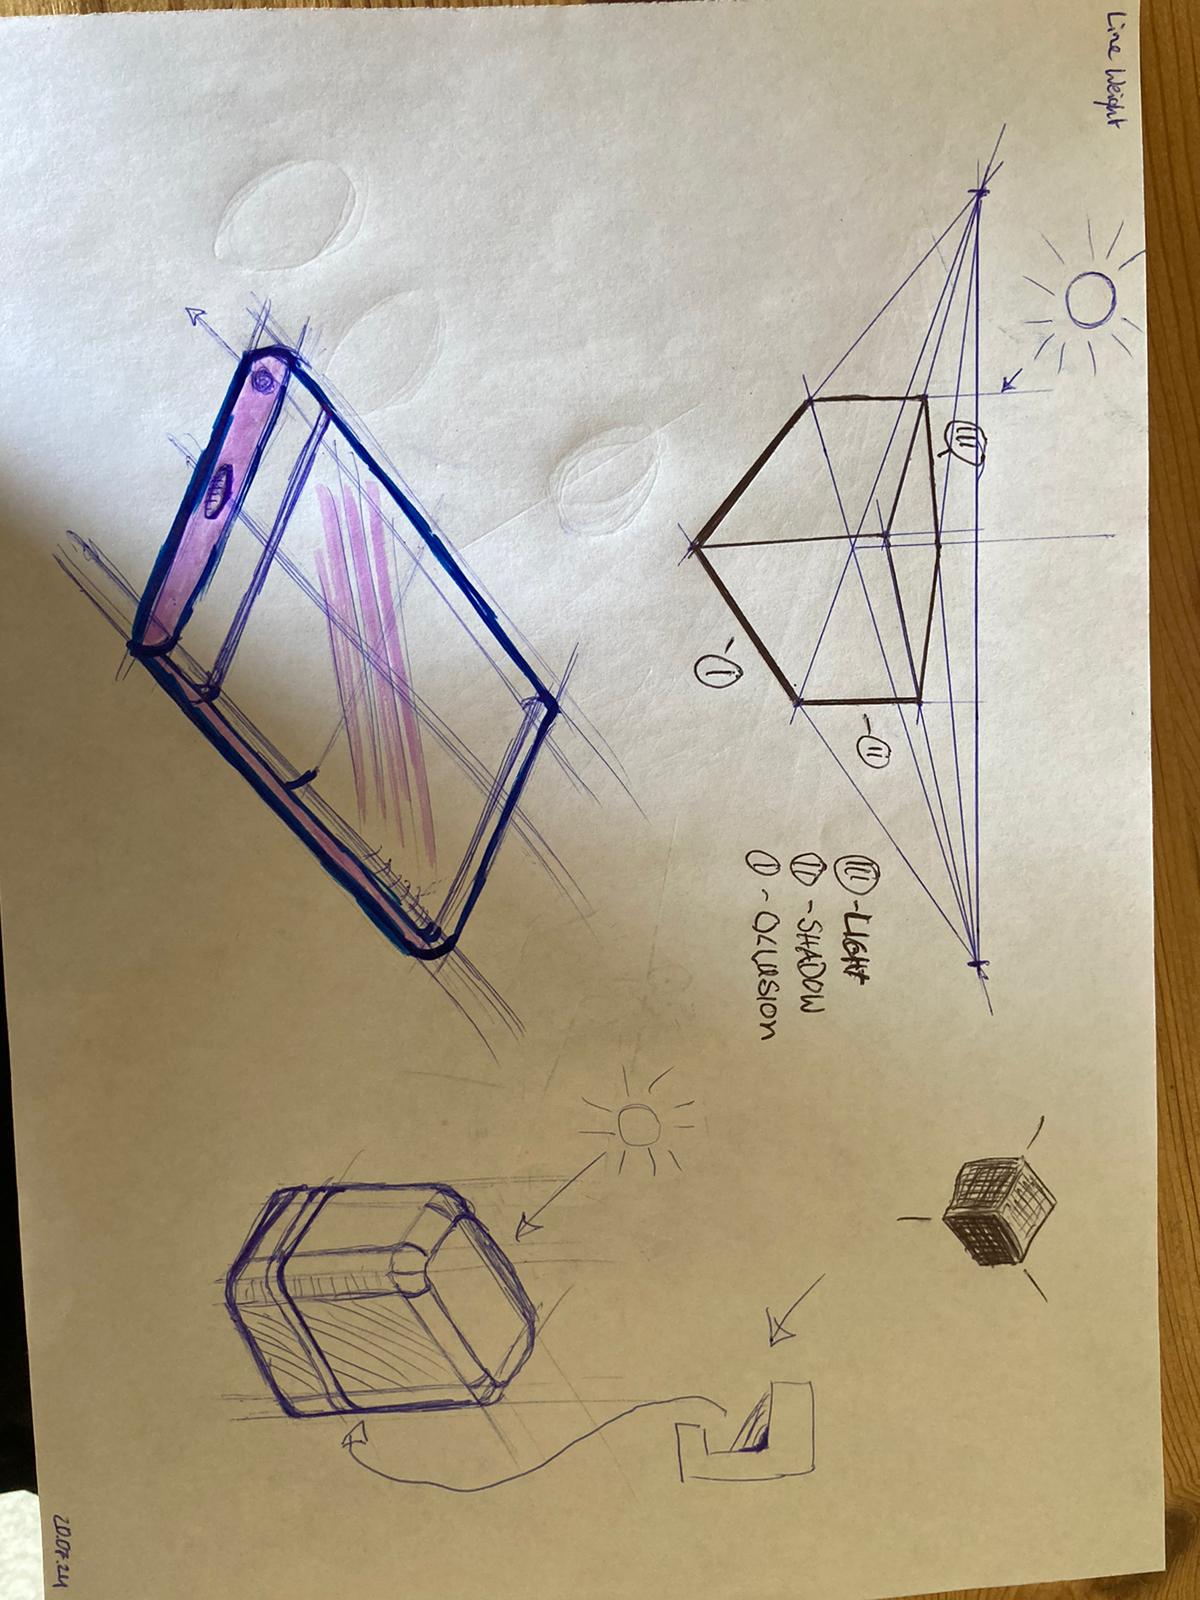 Line Weight
III
I
II
III - LIGHT
II - SHADOW
I - OCLUSION
20.07.24